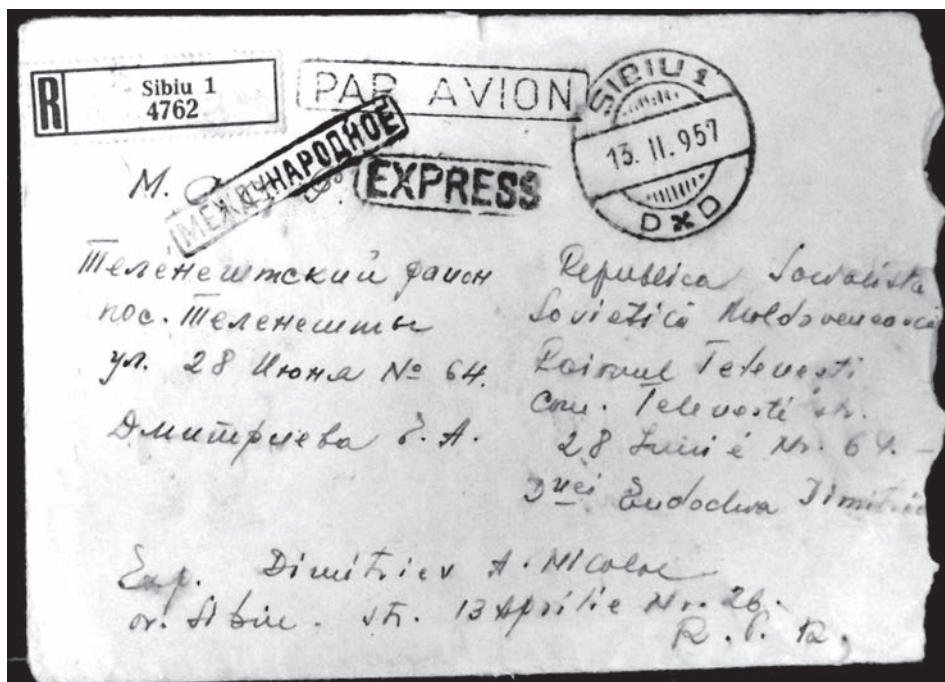 R
Sibiu 1
4762
PAR AVION
SIBIU 1
13. II. 957
D D
МЕЖДУНАРОДНОЕ
EXPRESS
М.
Теленештский район
пос. Теленешты
ул. 28 Июня № 64.
Дмитриева Е. А.
Republica Socialista
Sovietică
Raionul Telenesti
Com. Telenesti str.
28 Iunie Nr. 64. -
Dnei Eudochia Dimitrie
Exp. Dimitriev A. Nicolae
or. Sibiu. str. 13 Aprilie Nr. 26.
R. P. R.